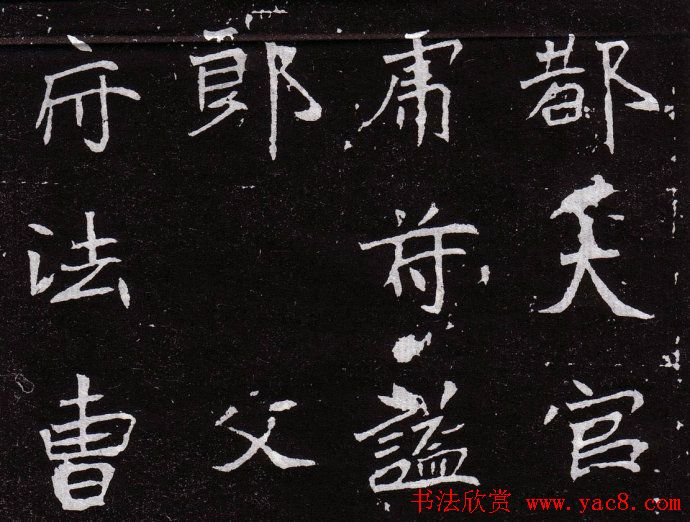 都天官
謚
郎父
府法曹
书法欣赏 www.yac8.com